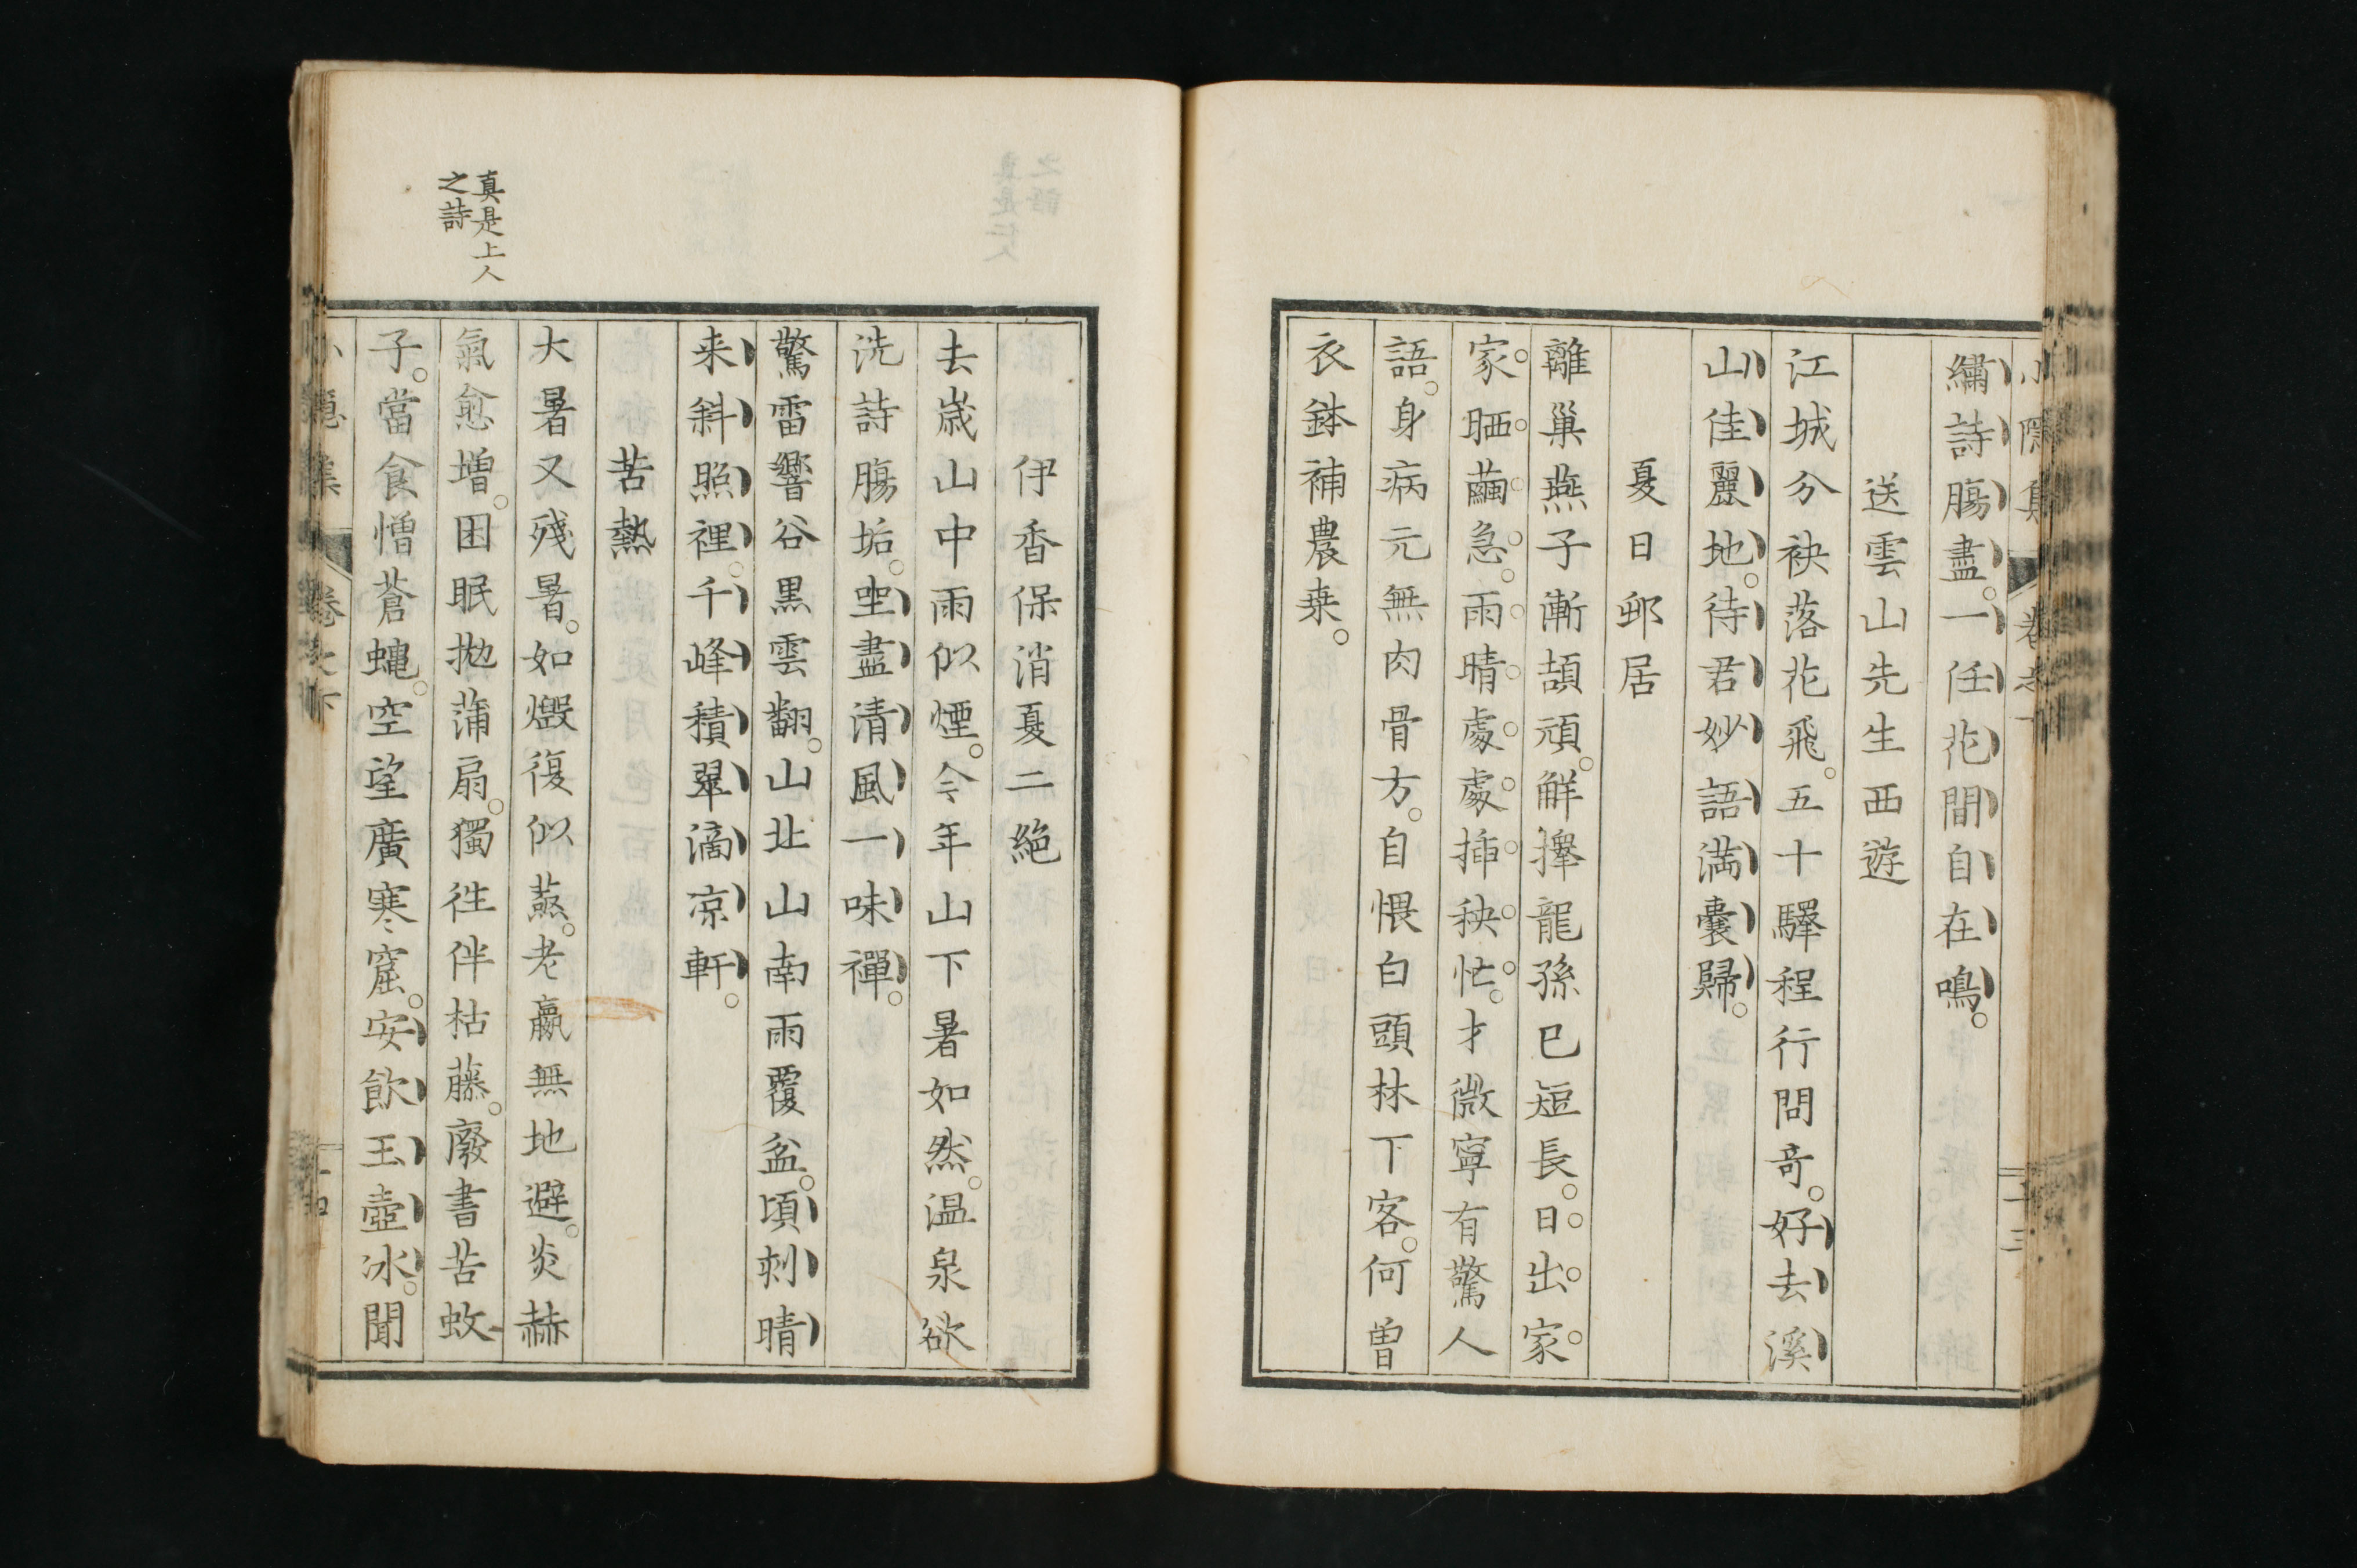 繡詩膓盡。一任花間自在鳴。
送雲山先生西遊
江城分袂落花飛。五十驛程行問奇。好去溪
山佳麗地。待君妙語満囊歸。
夏日郊居
離巢燕子漸頡頏。觧籜龍孫已短長。日出家
家晒繭急。雨晴處處挿秧忙。才微寧有驚人
語。身病元無肉骨方。自愄白頭林下客。何曽
衣鉢補農桒。
伊香保消夏二絶
去歳山中雨似煙。今年山下暑如然。温泉欲
洗詩膓垢。坐盡清風一味禪。
驚雷響谷黒雲翻。山北山南雨覆盆。頃刻晴
来斜照裡。千峰積翠滴凉軒。
苦熱
大暑又殘暑。如燬復似蒸。老羸無地避。炎赫
氣愈増。困眠抛蒲扇。獨徃伴枯藤。廢書苦蚊
子。當食憎蒼蠅。空望廣寒窟。安飲玉壺冰。聞
真是上人
之詩